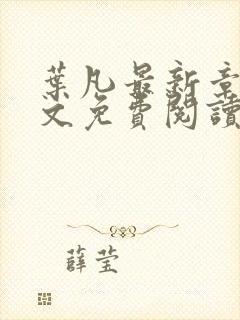 葉凡最新章
文免費閱讀
薛莹